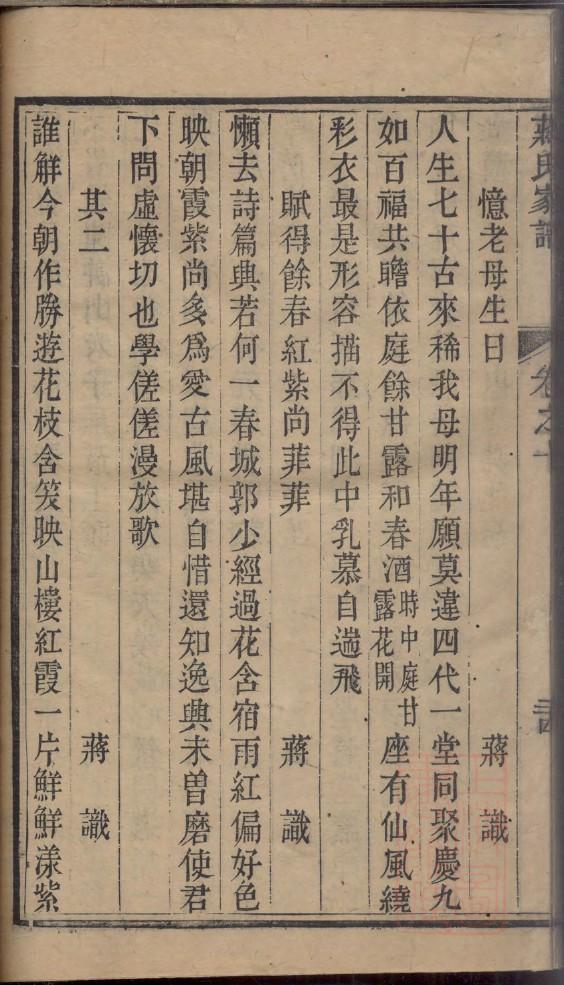 蔣氏家譜 卷之十
憶老母生日 蔣識
人生七十古來稀我母明年願莫違四代一堂同聚慶九
如百福共瞻依庭餘甘露和春酒時中庭甘露花開座有仙風繞
彩衣最是形容描不得此中乳慕自遄飛
賦得餘春紅紫尚菲菲 蔣識
懶去詩篇興若何一春城郭少經過花含宿雨紅偏好色
映朝霞紫尚多爲愛古風堪自惜還知逸興未曾磨使君
下問虛懷切也學傞傞漫放歌
其二 蔣識
誰解今朝作勝遊花枝含笑映山樓紅霞一片鮮鮮漾紫